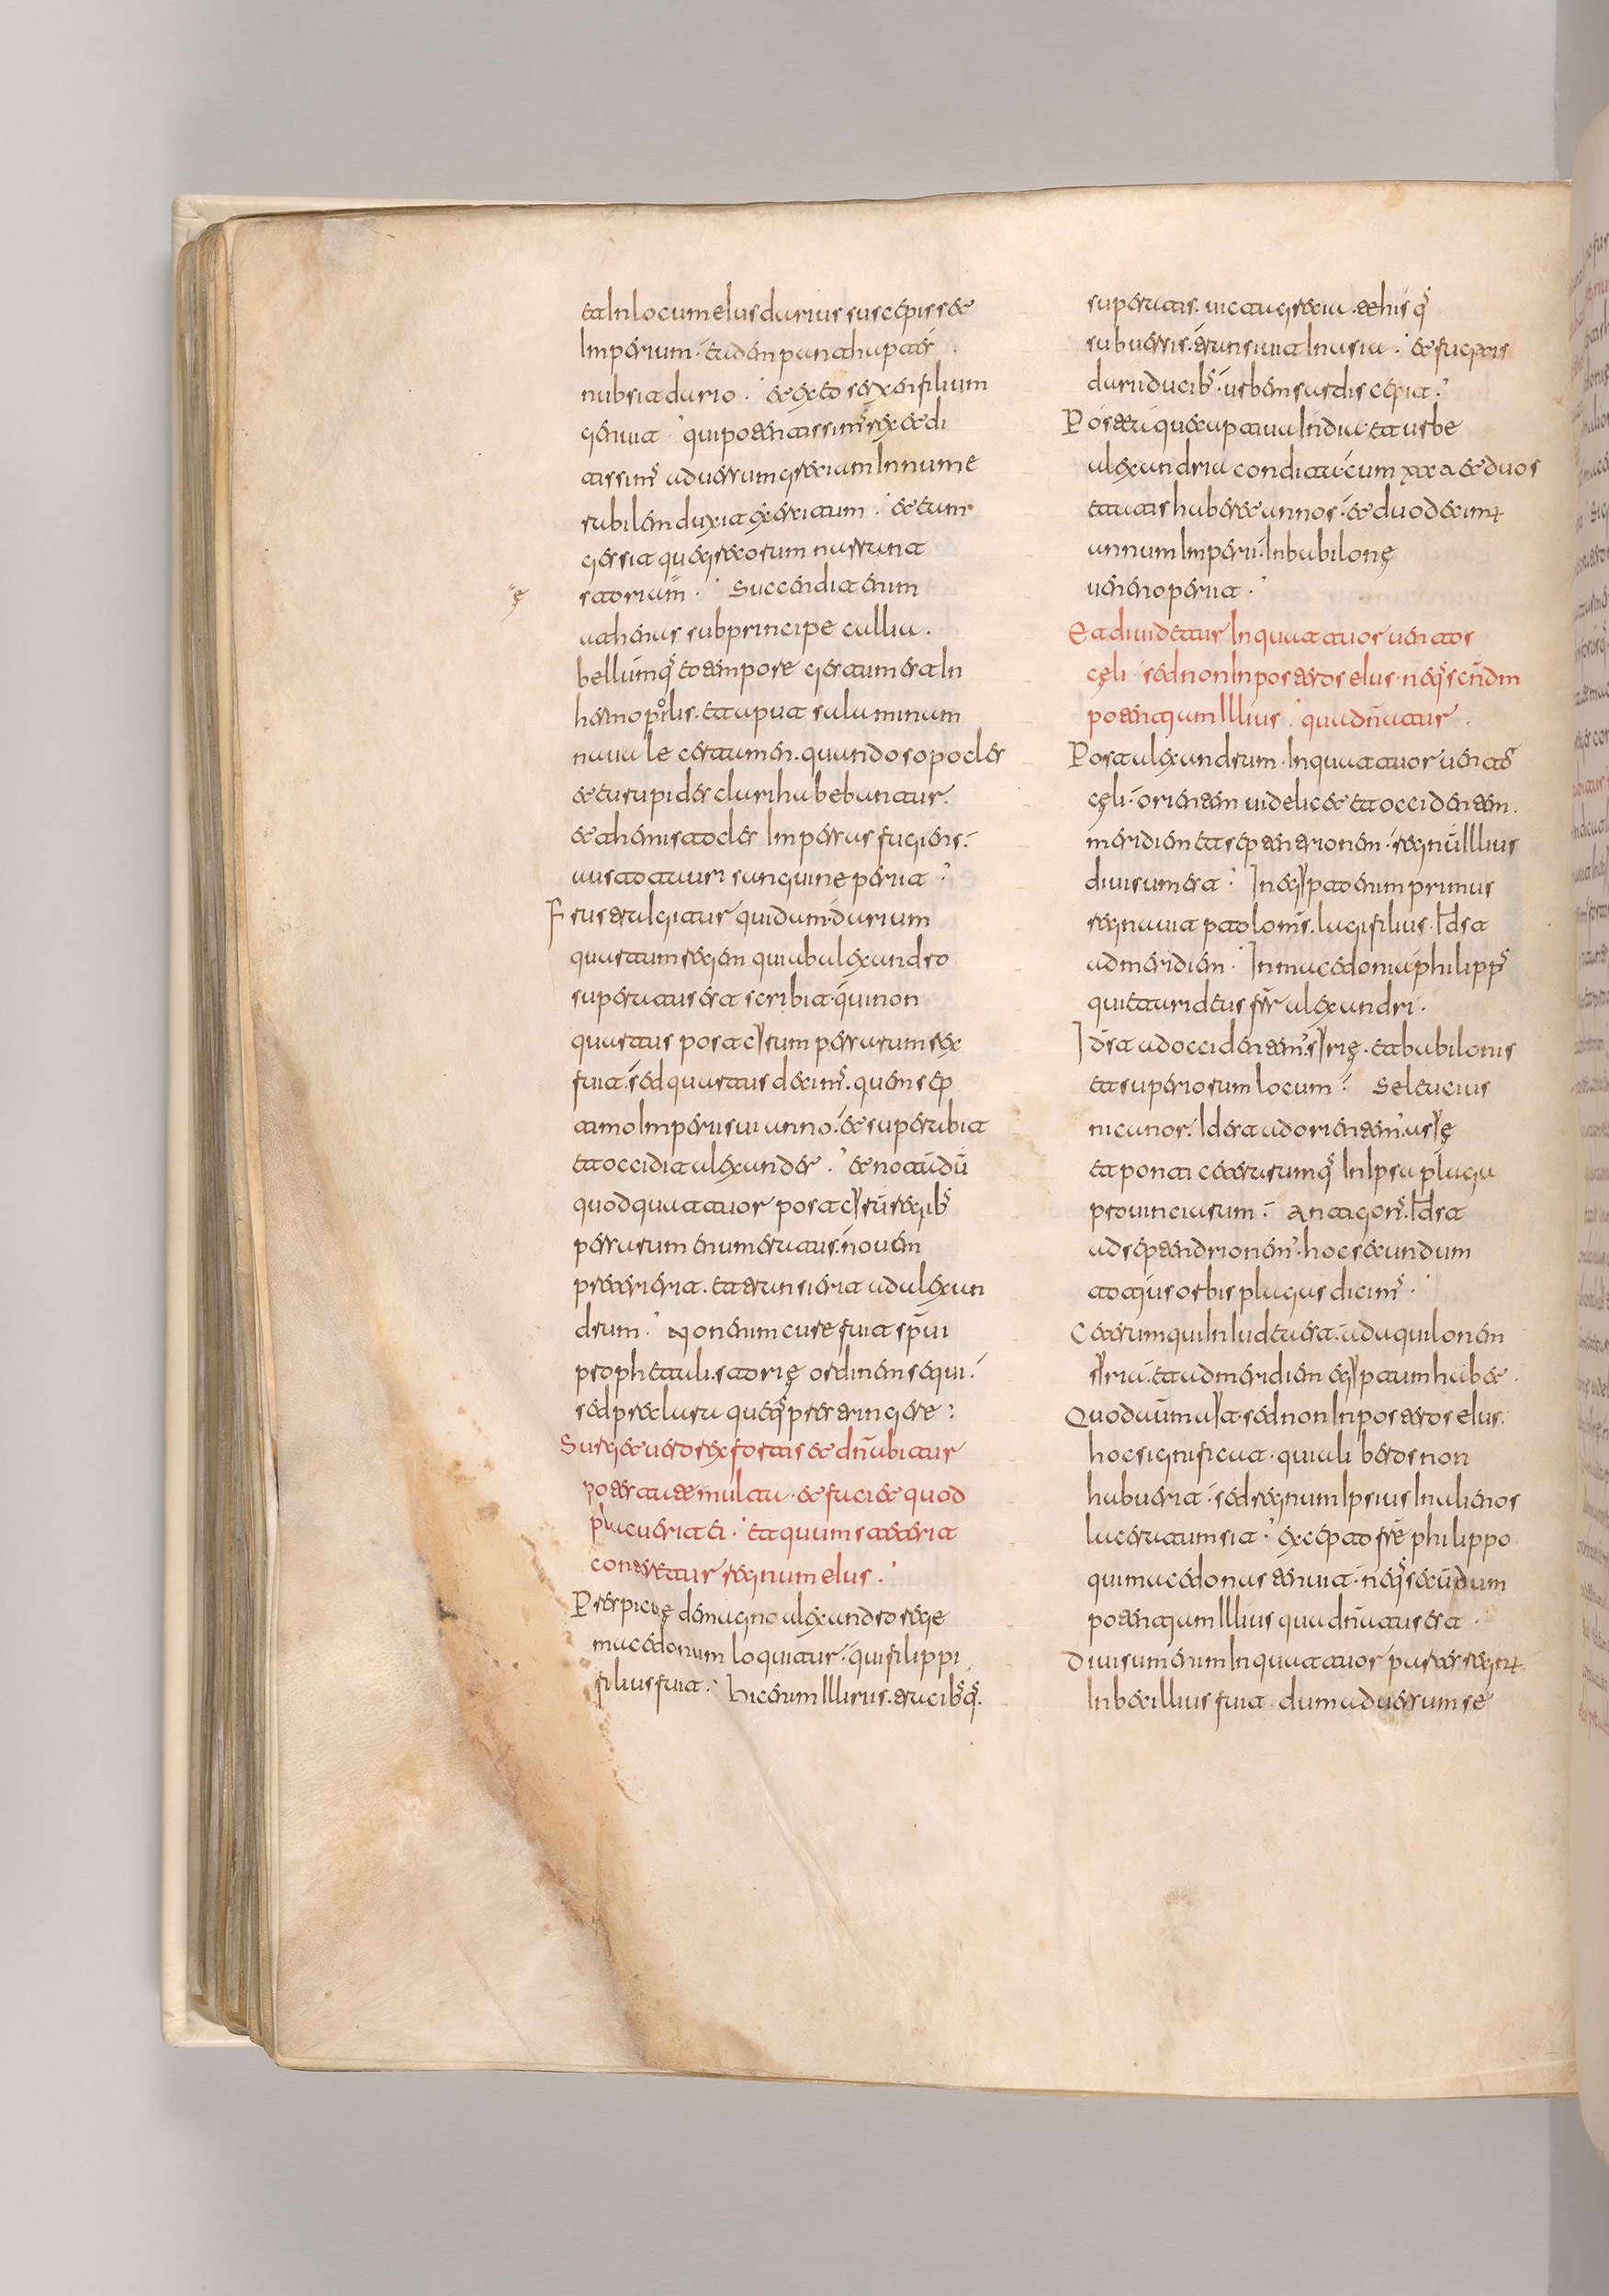 et In locum eius darius suscepisset
Imperium. eadem panthapter
nubsit dario. et ex eo serxen filium
genuit. qui potentissim᾽ rex et di
tissim᾽ aduersum greciam Innume
rabilem duxit exercitum. et eam
gessit que grecorum narrant
storium. Succendit enim
ę
athenas sub principe callia.
bellumq᾽ eo tempore gestum est In
hermopolis. et aput salaminam
nauale certamen. quando sopocles
et euripides clari habebantur.
et themistocles In persas fugiens.
austo tauri sanguine periit.
Frustra Igitur quidam. darium
quartum regem qui ab alexandro
superatus est scribit. qui non
quartus post cyrum persarum rex
fuit. sed quartus decim᾽. quem sep
timo Imperii sui anno. et superabit
et occidit alexander. et notandū
quod quattuor post cyrū regib᾽
persarum enumeratis. nouem
preterierit. et transierit ad alexan
drum. Non enim cure fuit spūi
prophetali. storię ordinem sequi.
sed preclara queq᾽ prestringere.
Surget uero rex fortis et dn̄abitur
potestate multa. et faciet quod
placuerit ei. et quum steterit
conteretur regnum eius.
Perspicuę de magno alexandro rege
macedonum loquitur. qui filippi
filius fuit. hic enim Illirus. tracib᾽q᾽.
superatis. uicta grecia. tehis q᾽
subuersis. transiuit In asia. et fugatis
darii ducib᾽. urbem sardis cepit.
Posteaque capta India. et urbe
alexandria condita. cum xxx a et duos
etatis haberet annos. et duodecim᾽
annum Imperii. In babilonę
ueneno periit.
Et diuidetur In quattuor uentos
cęli. sed non In posteros eius. neq᾽ scn̄dm
potentiam Illius. qua dn̄atur.
Post alexandrum. In quattuor uentos
cęli. orientem uidelicet et occidentem.
meridien et septentrionem. regnū Illius
diuisum est. In egypto enim primus
regnauit ptolom᾽. lagi filius. Id est
ad meridien. In macedonia philipp᾽
qui et arideus frr̄ alexandri.
Id est ad occidentem. syrię. et babilonis
et superiorum locum. Seleucius
nicanor. Id est ad orientem. asyę
et ponti ceterarumq᾽ In ipsa plaga
prouinciarum. antigon᾽. Id est
ad septendrionem. hoc secundum
totius orbis plagas dicim᾽.
Ceterum qui In Iudeu est. ad aquilonem
syria. et ad meridien egyptum habet.
Quod aūm ayt. sed non In posteros eius.
hoc significat. quia liberos non
habuerit. sed regnum Ipsius In alienos
laceratum sit. excepto frr̄e philippo
qui macedonas tenuit. neq᾽ secūdum
potentiam Illius qua dn̄atus est.
Diuisum enim In quattuor partes regn᾽
Inbecillius fuit. dum aduersum se